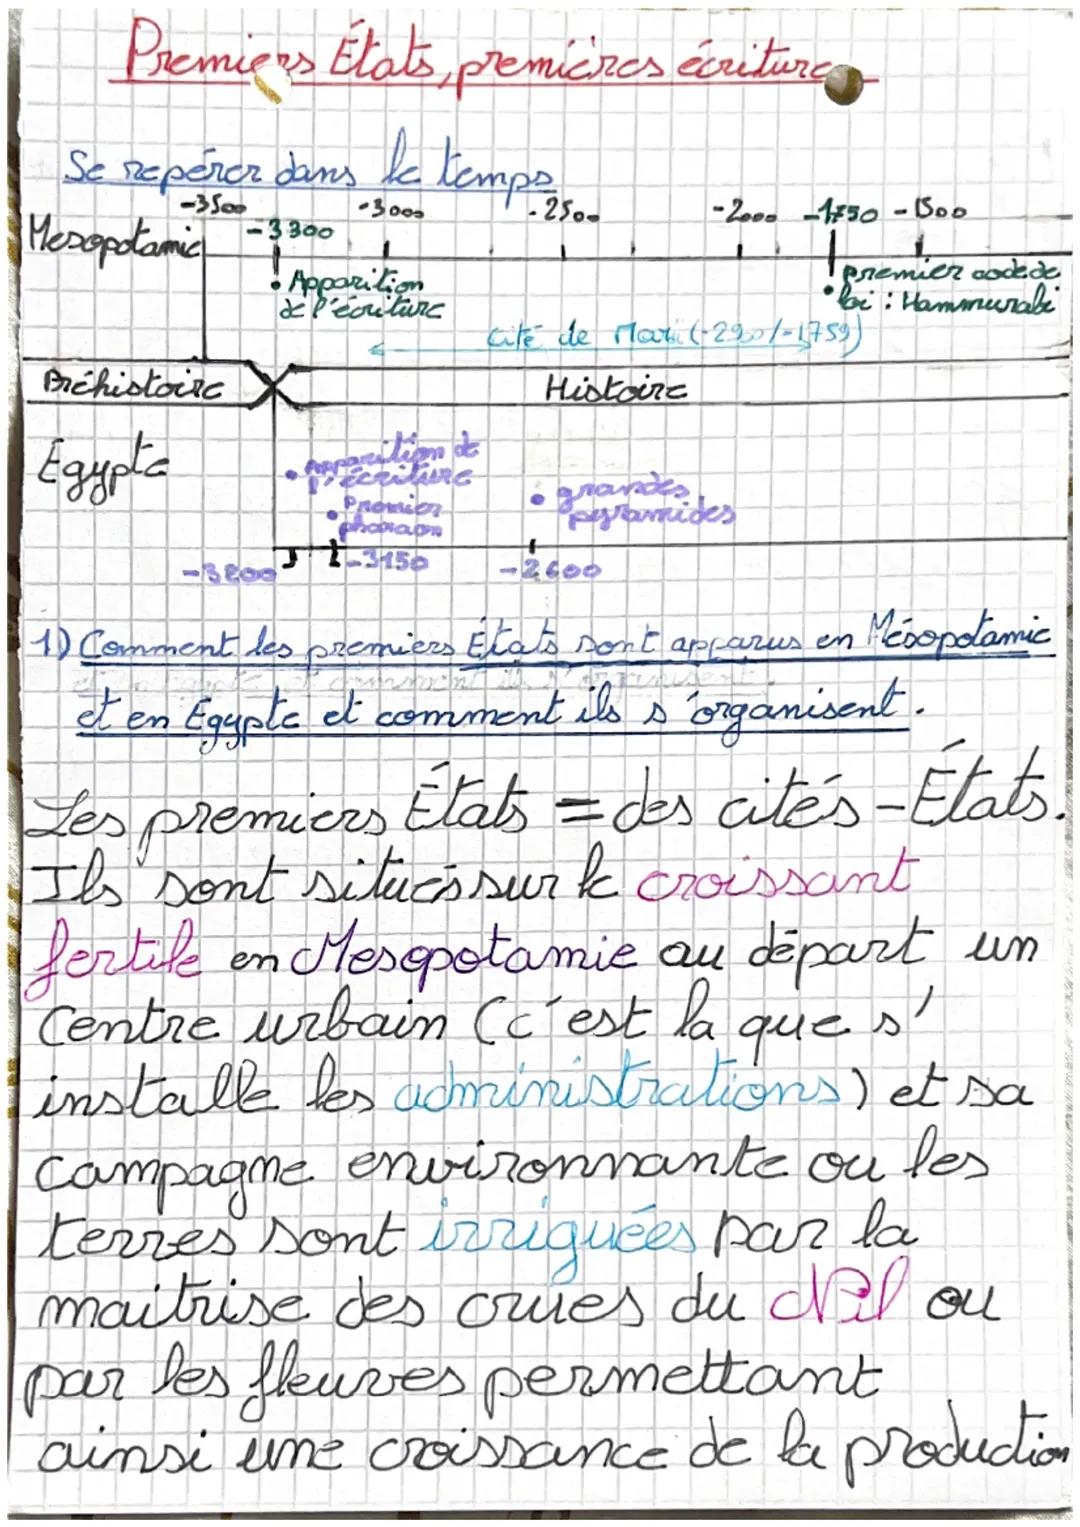 Premiers États, premières écriture
Se repérer dans le temps
-3500 -3000 -2500 -2000 -1750 -1500
Mesopotamie -3300
Apparition de l'écriture
premier code de loi : Hammurabi
Cité de Mari (-2900/-1759)
Préhistoire Histoire
Egypte
Apparition de l'écriture
Premier pharaon
grandes pyramides
-3200 -3150 -2600
1) Comment les premiers États sont apparus en Mésopotamie
et en Egypte et comment ils s'organisent.
Les premiers États = des cités-États.
Ils sont situés sur le croissant
fertile en Mesopotamie au départ un
Centre urbain (c'est la que s'
installe les administrations) et sa
campagne environnante ou les
terres sont irriguées par la
maitrise des crues du Nil ou
par les fleuves permettant
ainsi une croissance de la production